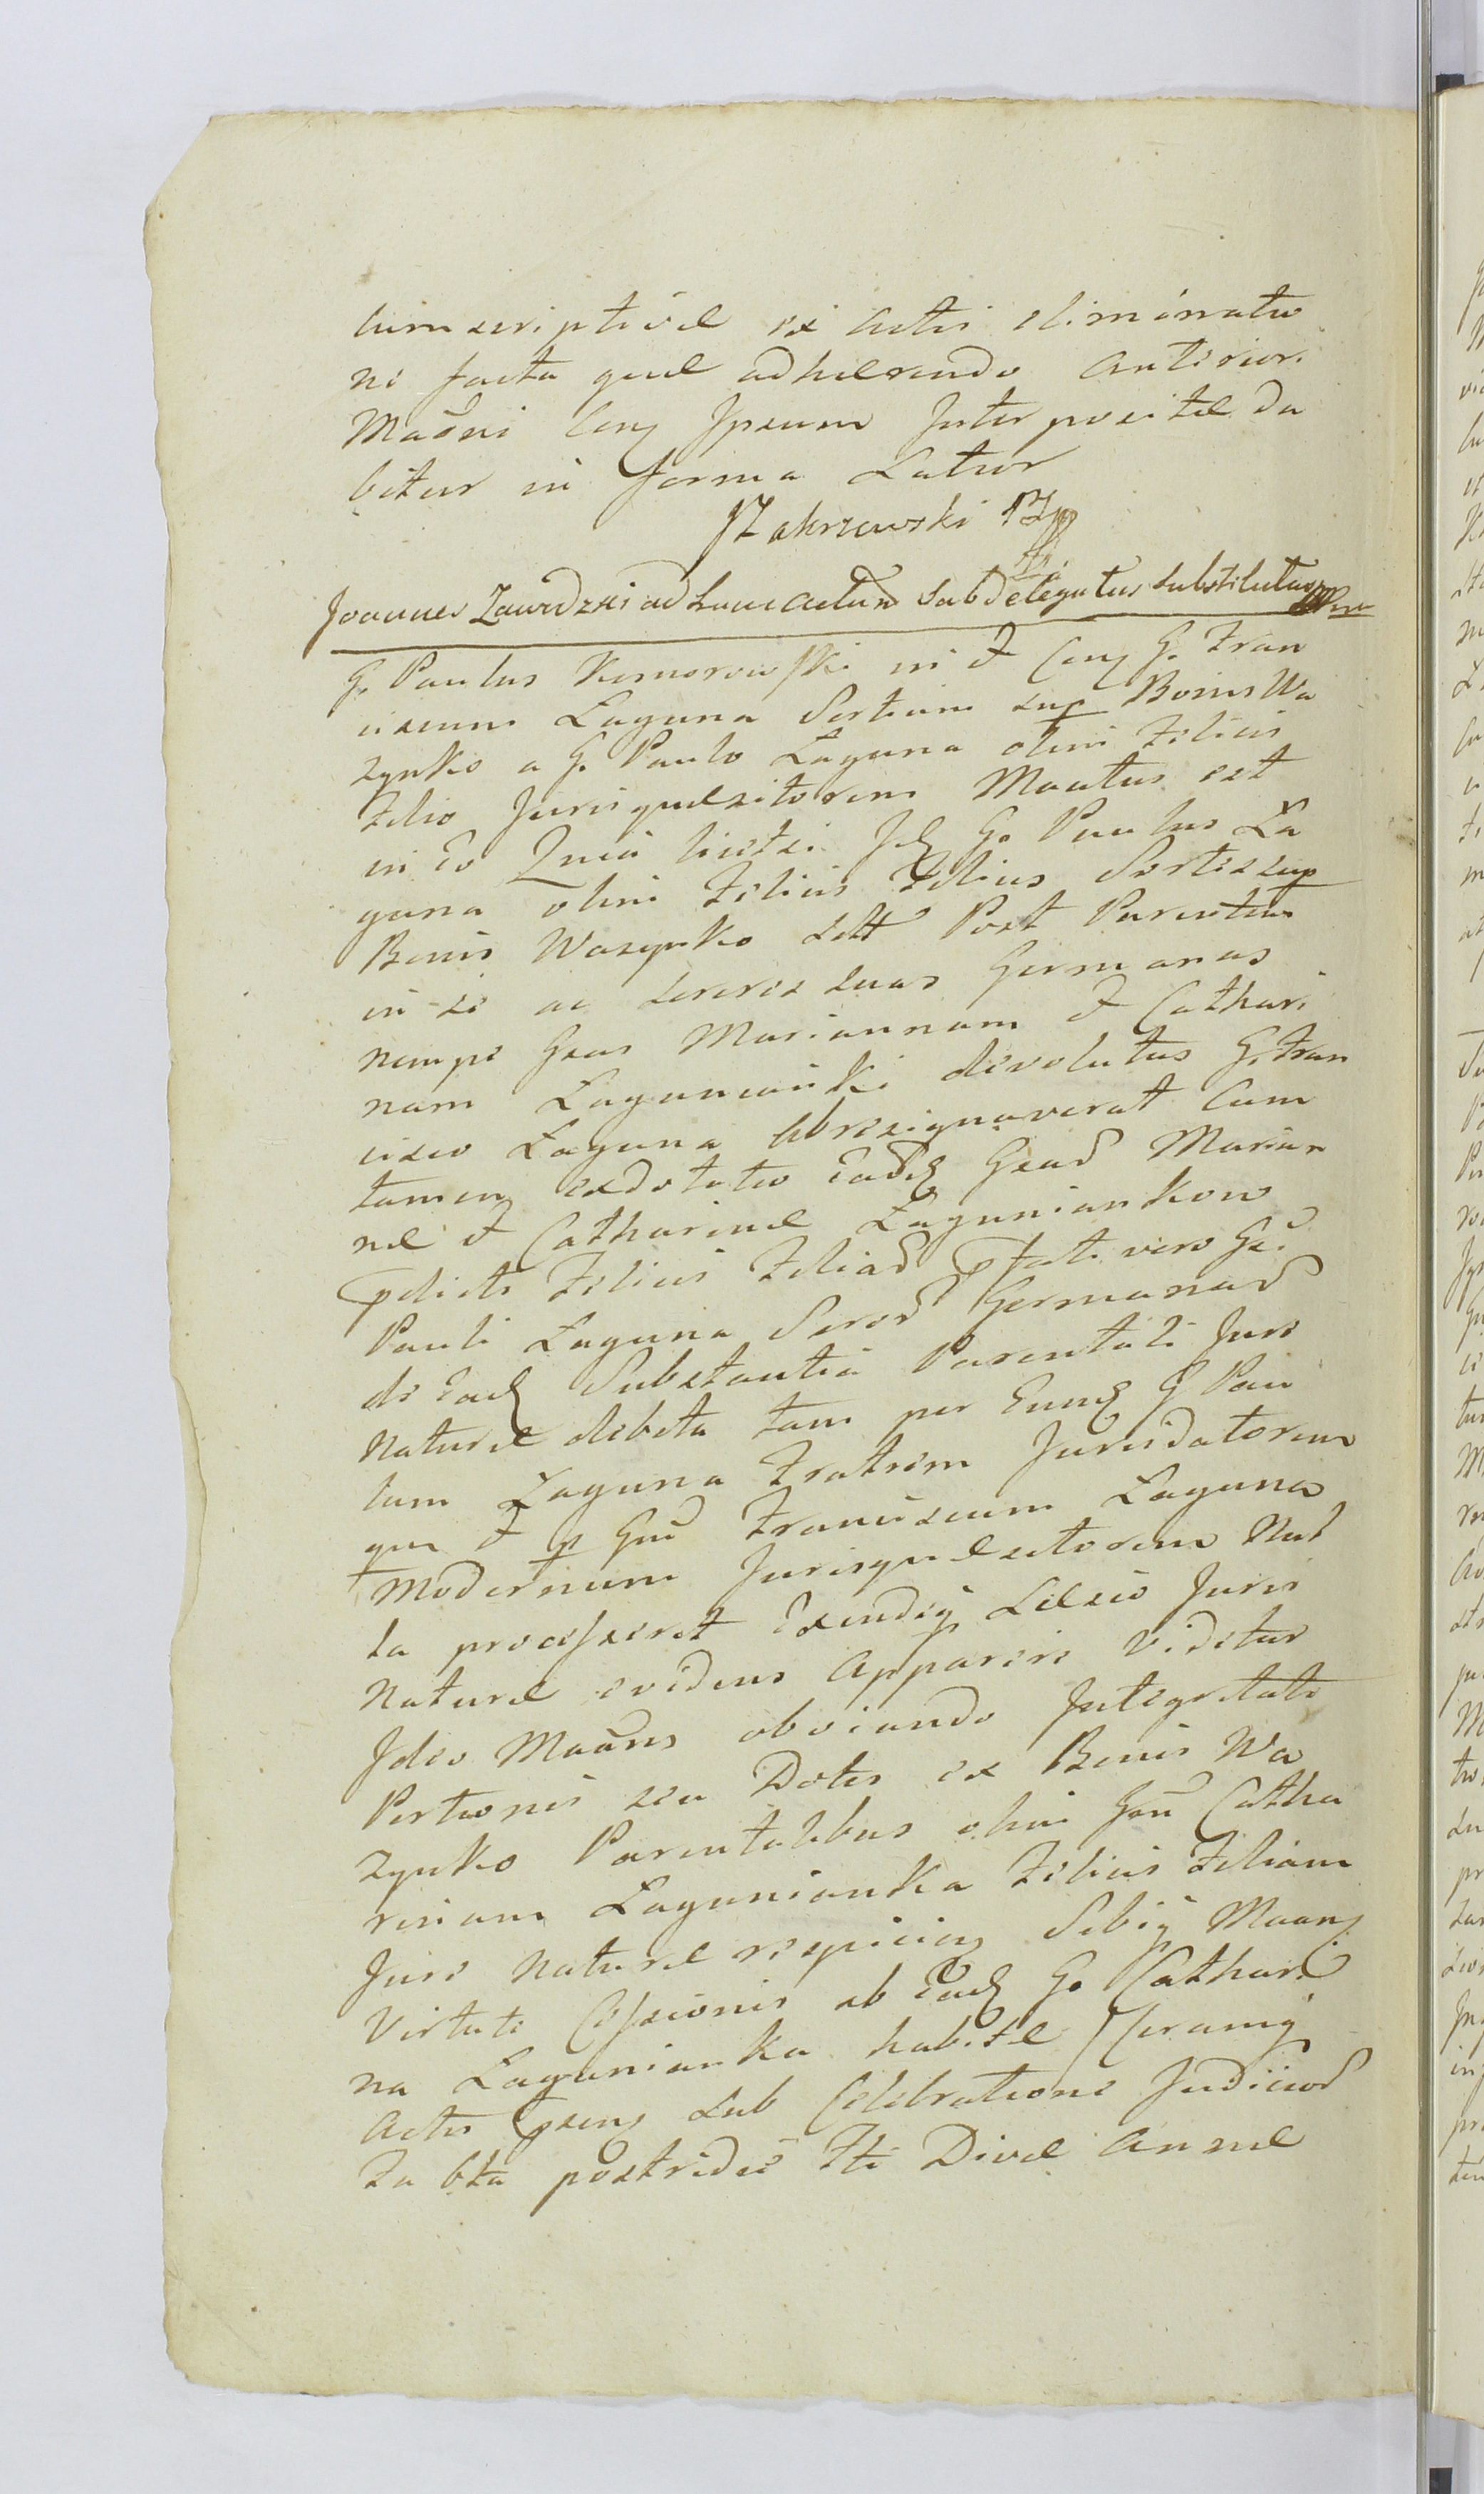 cumscriptivae ex Actis eliminatio
ni facta quae adhaerendo Anteriori
Maoni Conz Ipsum Interpositae Da
bitur in forma Latior
JZakrzewski
Joannes Zawidzki ad hunc actum Subdelegatus Substitutus
G. Paulus Komorowski in et Conz G. Fran
ciscum Laguna Sortium sup Bonis Wa
zynko a G. Paulo Laguna olim Felicis
Filio Jurisquaesitorem Maatus est
in Eo Quia licet Idz G. Paulus La
guna olim Felicis Filius Sortes sup
Bonis Wazynko Post Parentum
in se ac sorores suas Germanas
nempe Gsas Mariannam et Cathari
nam Laguncianki devolutas G. Fran
cisco Laguna Abresignaverat Cum
tamen exdotatio Eadz Gsad Marian
nae et Catharinae Laguniankow
pdicti Felicis Filiad pfati vero Gsi
Pauli Laguna Serod Germanad
de Eadz Substantia Parentali Jure
Naturae debita tam per Eunz G Pau
lum Laguna Fratrem Jurisdatorem
qm et p Gnu Franciscum Laguna
Modernum Jurisquaesitorem Nul
la processerit Exindeq Laesio Juris
Naturae evidens Apparere Videtur
Ideo Maans obviando Integritati
Portionis seu Dotis ex Bonis Wa
zynko Parentalibus olim Gsu Catha
rinam Lagunianka Felicis Filiam
Jure Naturae respicienz Sibiq Maanz
Virtute Cessionis ab Eadz G. Cathari
na Lagunianka habitae Coramq
Actis psenz sub Celebratione Judiciod
Sabbto postridie Fti Divae Annae